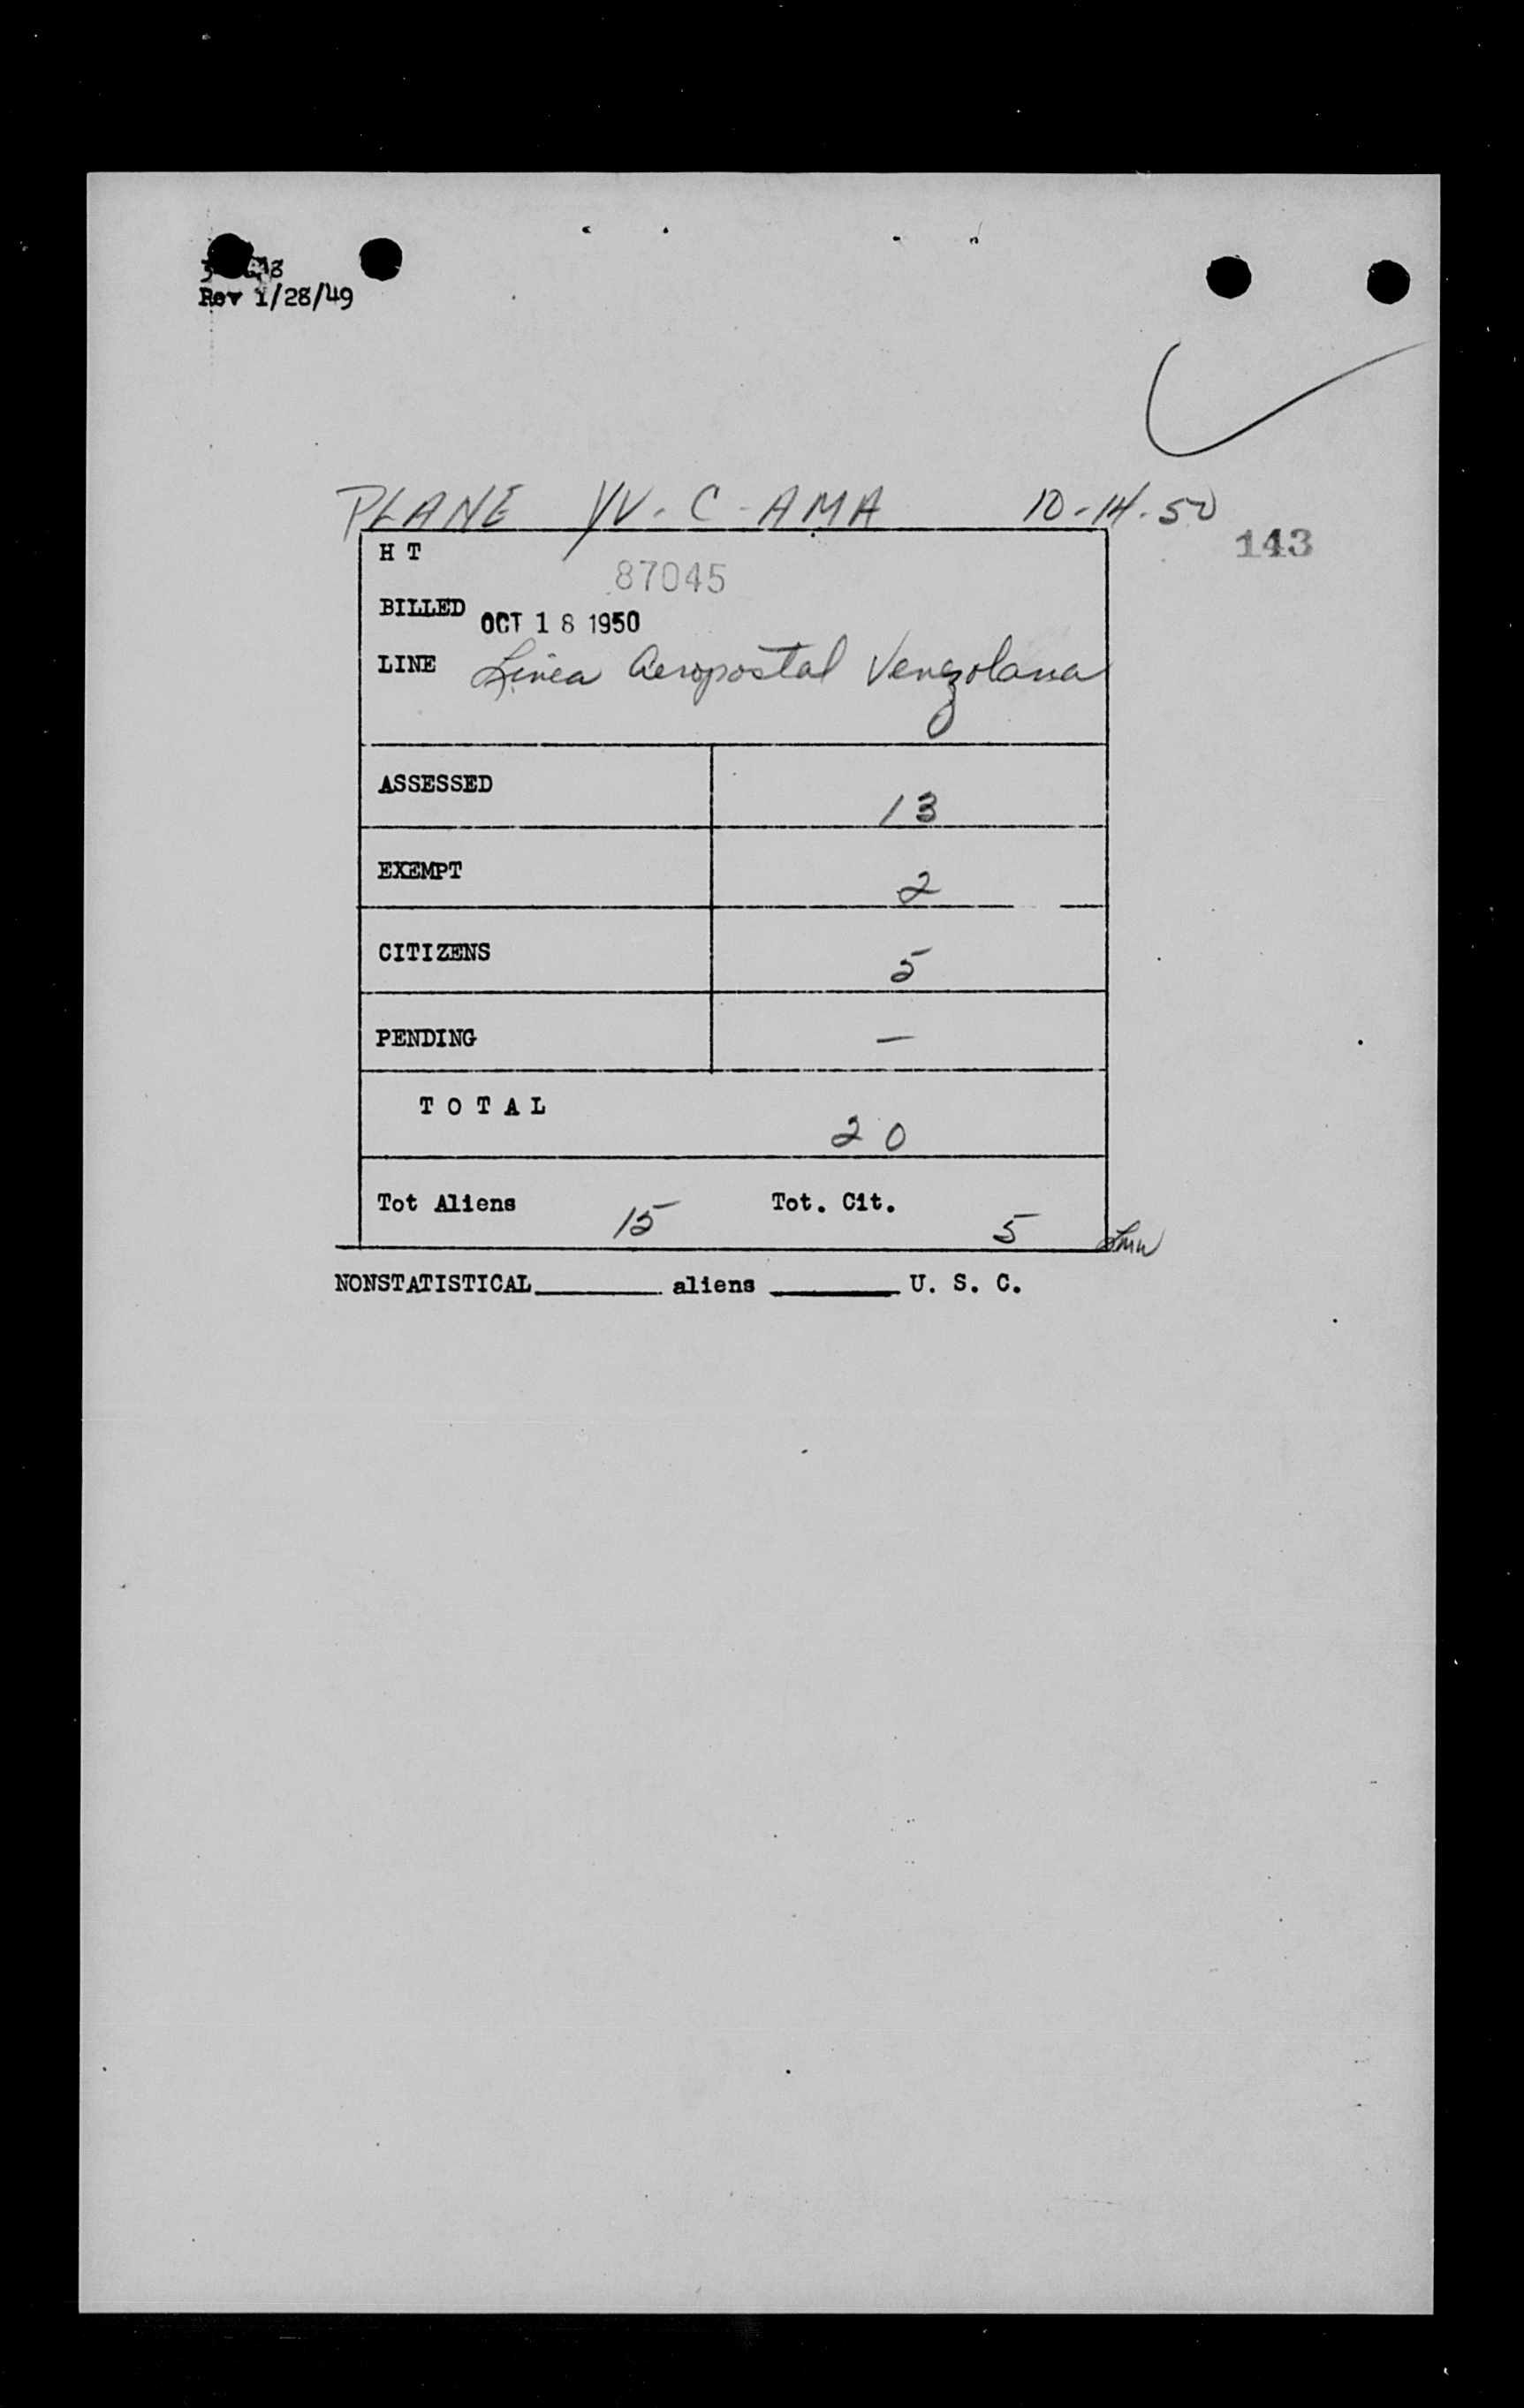 Rev 1/28/49
PLANE YV-C-AMA 10-14-50
143
H T
87045
BILLED OCT 18 1950
LINE Linea Aeropostal Venezolana
ASSESSED 13
EXEMPT 2
CITIZENS 5
PENDING —
TOTAL 20
Tot Aliens 15 Tot. Cit. 5
NONSTATISTICAL________ aliens ________ U. S. C.